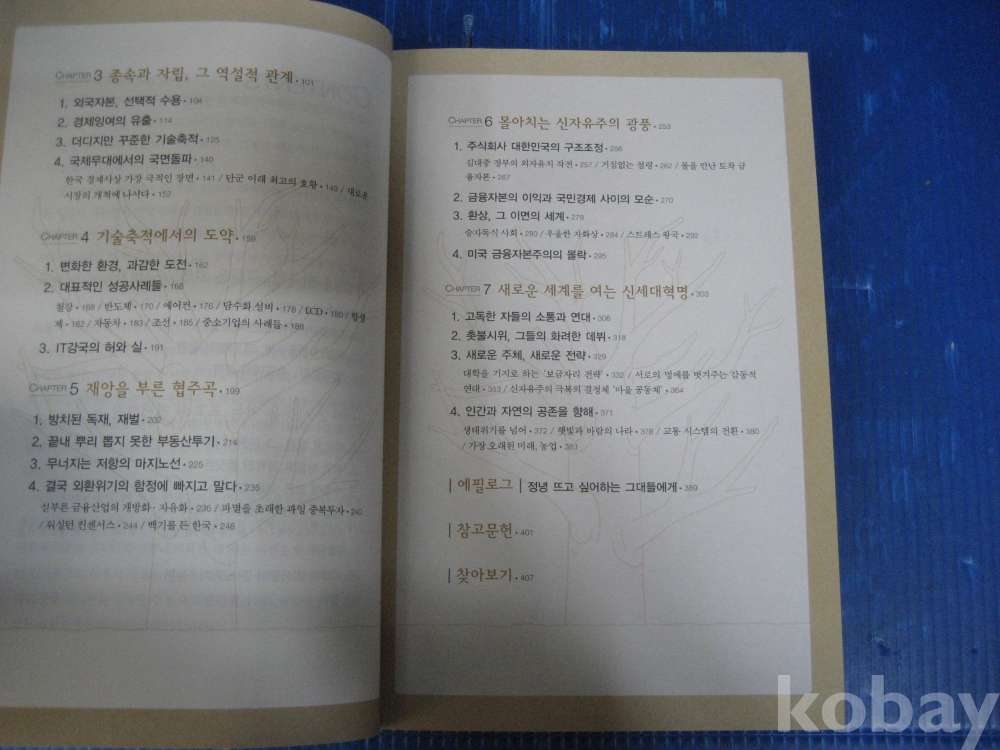 CHAPTER 3 종속과 자립, 그 역설적 관계 • 101
1. 외국자본, 선택적 수용 • 104
2. 경제잉여의 유출 • 114
3. 더디지만 꾸준한 기술축적 • 125
4. 국제무대에서의 국면돌파 • 140
한국 경제사상 가장 극적인 장면 • 141 / 단군 이래 최고의 호황 • 149 / 새로운
시장의 개척에 나서다 • 152
CHAPTER 4 기술축적에서의 도약 • 159
1. 변화한 환경, 과감한 도전 • 162
2. 대표적인 성공사례들 • 168
철강 • 168 / 반도체 • 170 / 에어컨 • 176 / 담수화 설비 • 178 / LCD • 180 / 항생
제 • 182 / 자동차 • 183 / 조선 • 185 / 중소기업의 사례들 • 188
3. IT강국의 허와 실 • 191
CHAPTER 5 재앙을 부른 협주곡 • 199
1. 방치된 독재, 재벌 • 202
2. 끝내 뿌리 뽑지 못한 부동산투기 • 214
3. 무너지는 저항의 마지노선 • 225
4. 결국 외환위기의 함정에 빠지고 말다 • 235
섣부른 금융산업의 개방화 · 자유화 • 236 / 파멸을 초래한 과잉 중복투자 • 240
/ 워싱턴 컨센서스 • 244 / 백기를 든 한국 • 248
CHAPTER 6 몰아치는 신자유주의 광풍 • 253
1. 주식회사 대한민국의 구조조정 • 256
김대중 정부의 외자유치 작전 • 257 / 거침없는 점령 • 262 / 물을 만난 토착 금
융자본 • 267
2. 금융자본의 이익과 국민경제 사이의 모순 • 270
3. 환상, 그 이면의 세계 • 279
승자독식 사회 • 280 / 우울한 자화상 • 284 / 스트레스 왕국 • 292
4. 미국 금융자본주의의 몰락 • 295
CHAPTER 7 새로운 세계를 여는 신세대혁명 • 303
1. 고독한 자들의 소통과 연대 • 306
2. 촛불시위, 그들의 화려한 데뷔 • 318
3. 새로운 주체, 새로운 전략 • 329
대학을 기지로 하는 '보금자리 전략' • 332 / 서로의 멍에를 벗겨주는 감동적
연대 • 353 / 신자유주의 극복의 결정체 '마을 공동체' • 364
4. 인간과 자연의 공존을 향해 • 371
생태위기를 넘어 • 372 / 햇빛과 바람의 나라 • 378 / 교통 시스템의 전환 • 380
/ 가장 오래된 미래, 농업 • 383
| 에필로그 | 정녕 뜨고 싶어하는 그대들에게 • 389
| 참고문헌 • 401
| 찾아보기 • 407
kobay